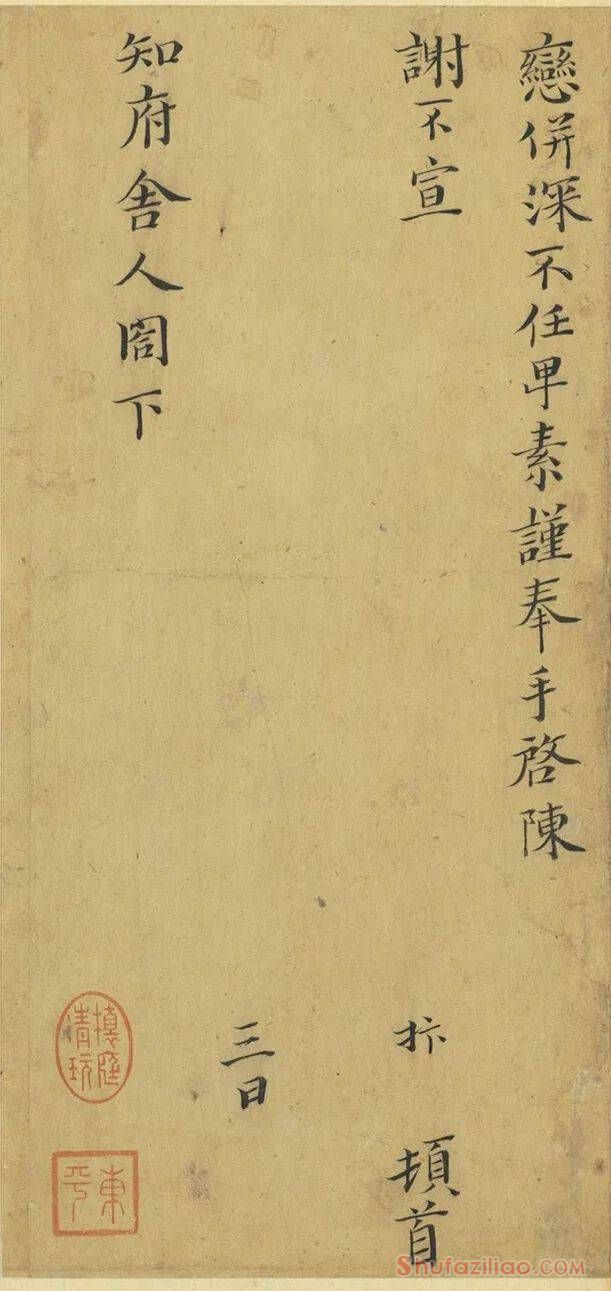 戀併深不任卑素謹奉手啓陳
謝不宣
抃 頓首
三日
知府舍人閤下
東平
Shufaziliao.com